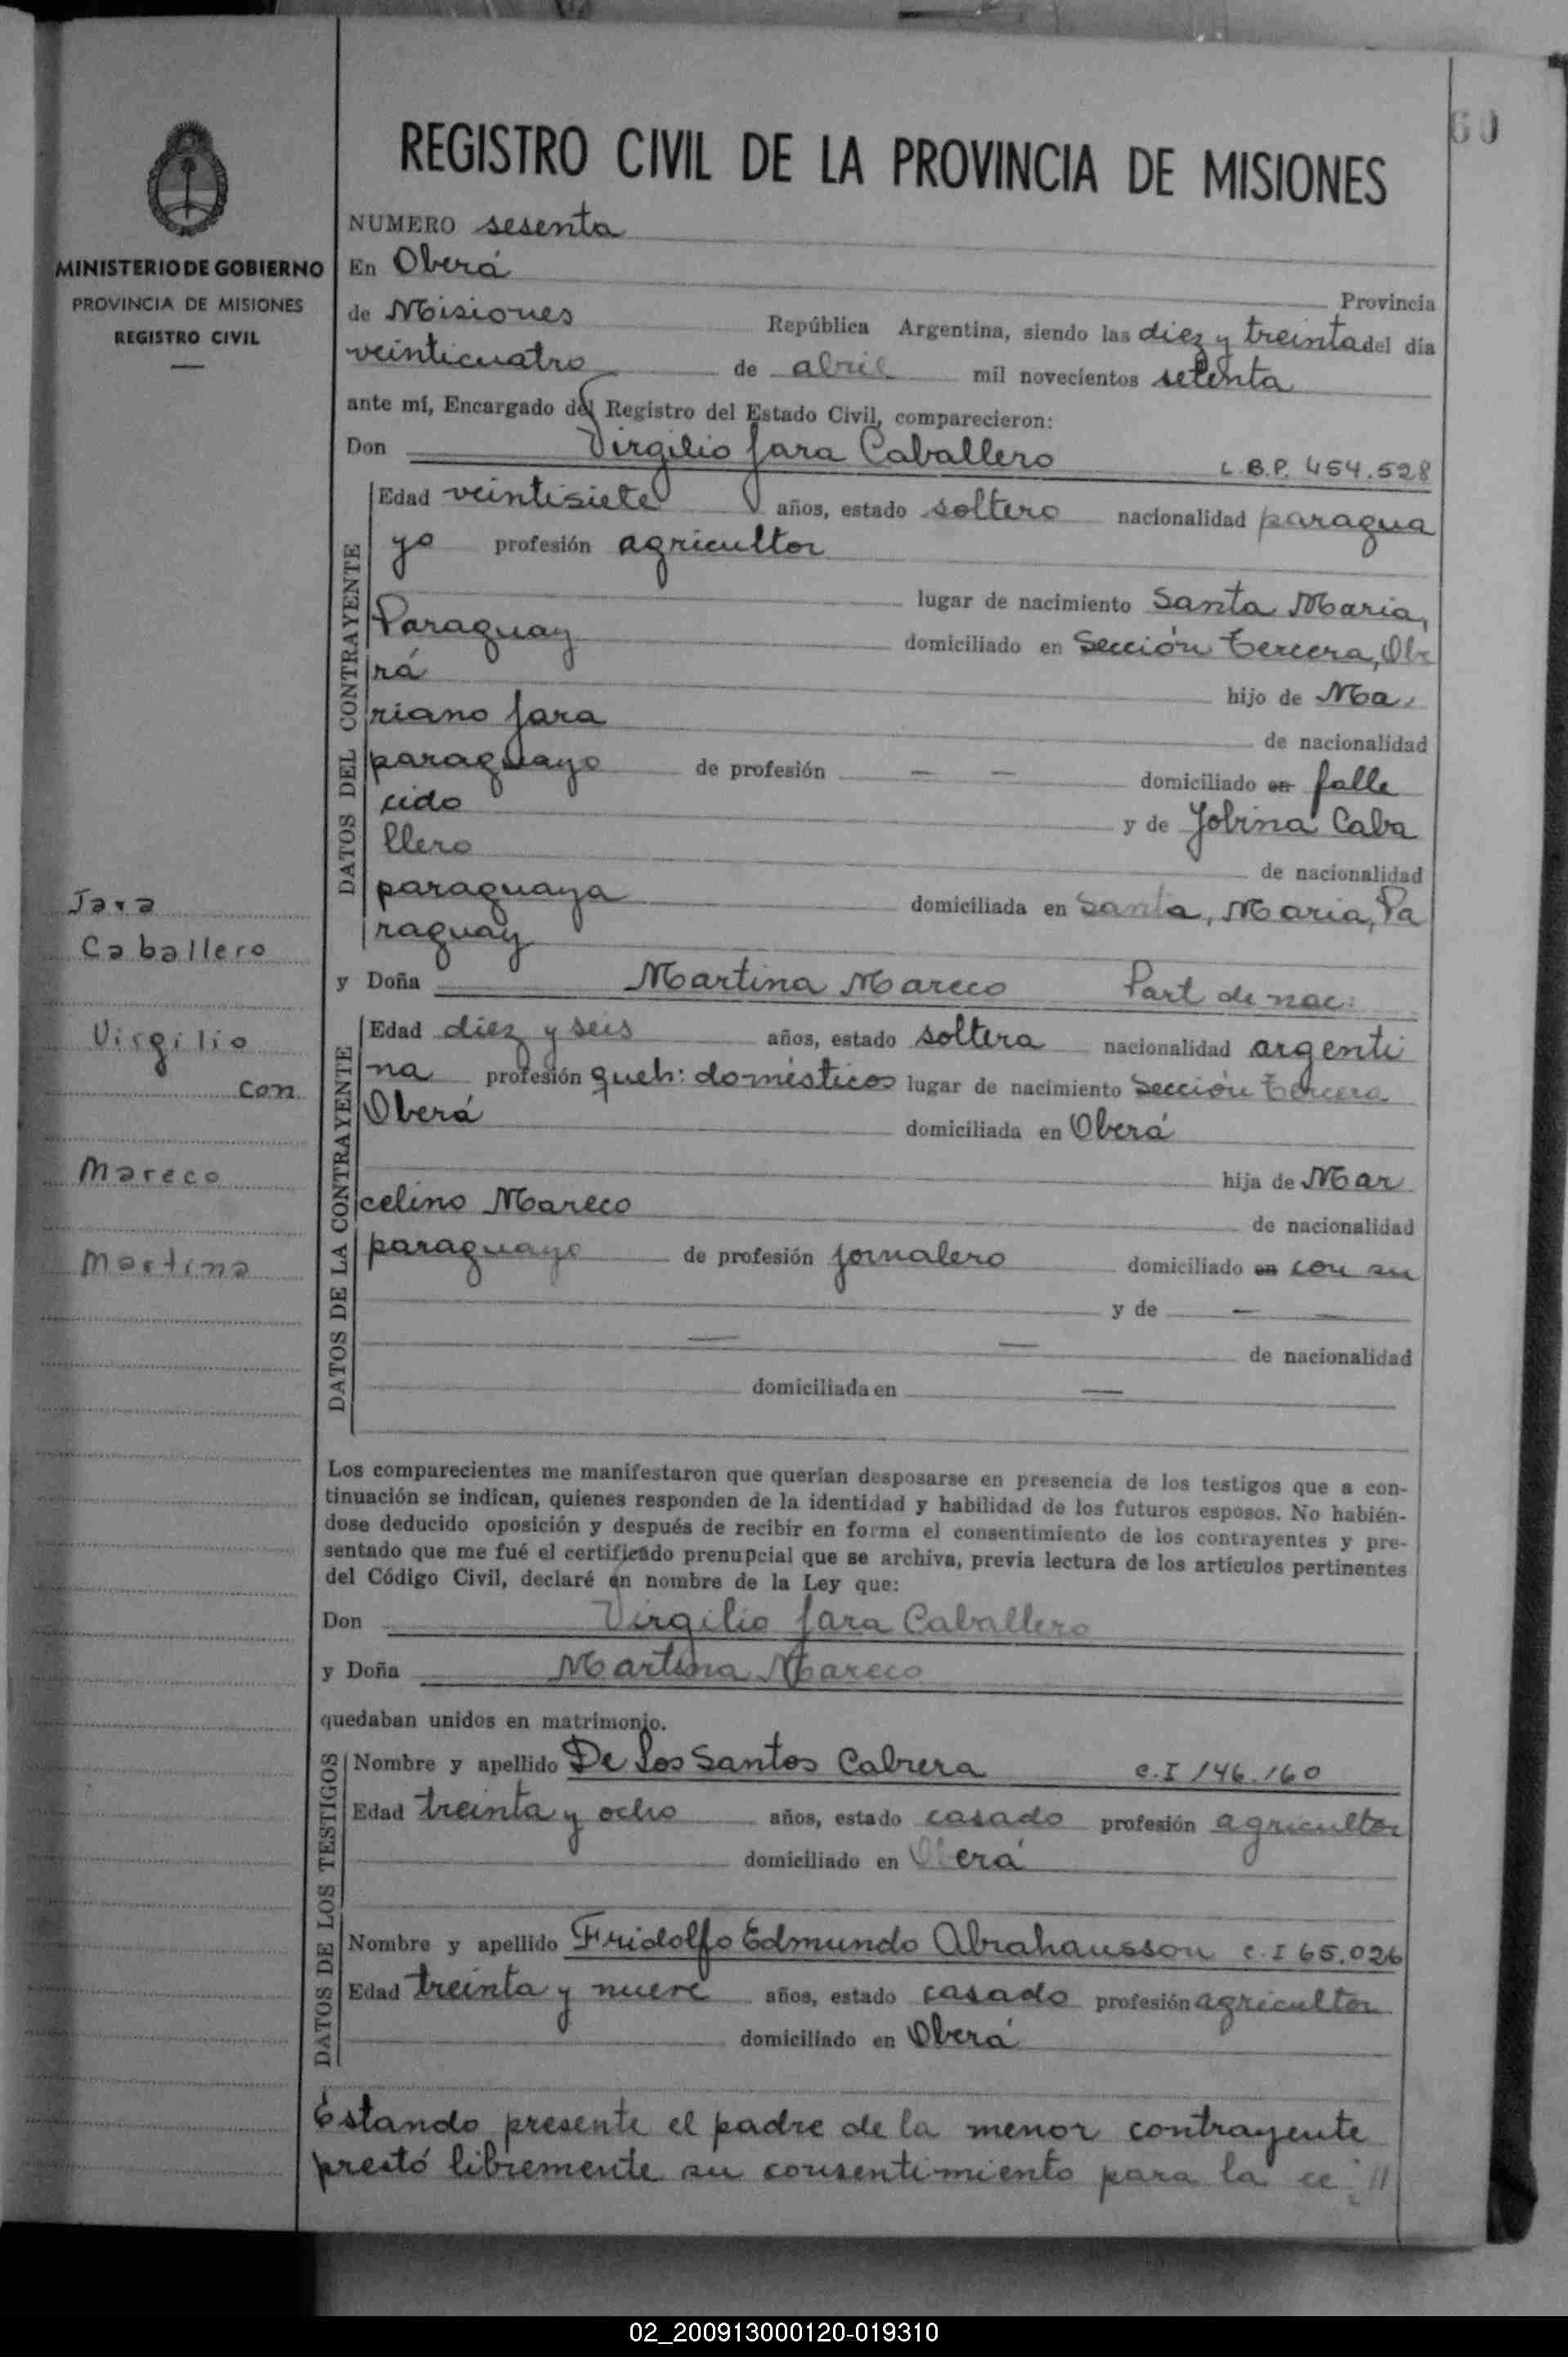 60
REGISTRO CIVIL DE LA PROVINCIA DE MISIONES
MINISTERIO DE GOBIERNO
PROVINCIA DE MISIONES
REGISTRO CIVIL
Jara
Caballero
Virgilio
con
Mareco
Martina
NUMERO sesenta
En Oberá
Provincia
de Misiones República Argentina, siendo las diez y treinta del día
veinticuatro de abril mil novecientos setenta
ante mí, Encargado del Registro del Estado Civil, comparecieron:
Don Virgilio Jara Caballero L.B.P. 454.528
DATOS DEL CONTRAYENTE
Edad veintisiete años, estado soltero nacionalidad paragua
yo profesión agricultor
lugar de nacimiento Santa Maria,
Paraguay domiciliado en Sección tercera, Obe
rá hijo de Ma
riano Jara de nacionalidad
paraguayo de profesión — — domiciliado en falle
cido y de Jobina Caba
llero de nacionalidad
paraguaya domiciliada en Santa, Maria, Pa
raguay
y Doña Martina Mareco Part de nac.
DATOS DE LA CONTRAYENTE
Edad diez y seis años, estado soltera nacionalidad argenti
na profesión queh: domésticos lugar de nacimiento Sección tercera
Oberá domiciliada en Oberá
hija de Mar
celino Mareco de nacionalidad
paraguayo de profesión jornalero domiciliado en con su
y de — —
— — de nacionalidad
domiciliada en —
Los comparecientes me manifestaron que querían desposarse en presencia de los testigos que a con-
tinuación se indican, quienes responden de la identidad y habilidad de los futuros esposos. No habién-
dose deducido oposición y después de recibir en forma el consentimiento de los contrayentes y pre-
sentado que me fué el certificado prenupcial que se archiva, previa lectura de los artículos pertinentes
del Código Civil, declaré en nombre de la Ley que:
Don Virgilio Jara Caballero
y Doña Martina Mareco
quedaban unidos en matrimonio.
DATOS DE LOS TESTIGOS
Nombre y apellido De Los Santos Cabrera c.I 146.160
Edad treinta y ocho años, estado casado profesión agricultor
domiciliado en Oberá
Nombre y apellido Fridolfo Edmundo Abrahansson c.I 65.026
Edad treinta y nueve años, estado casado profesión agricultor
domiciliado en Oberá
Estando presente el padre de la menor contrayente
prestó libremente su consentimiento para la ce //
02_200913000120-019310